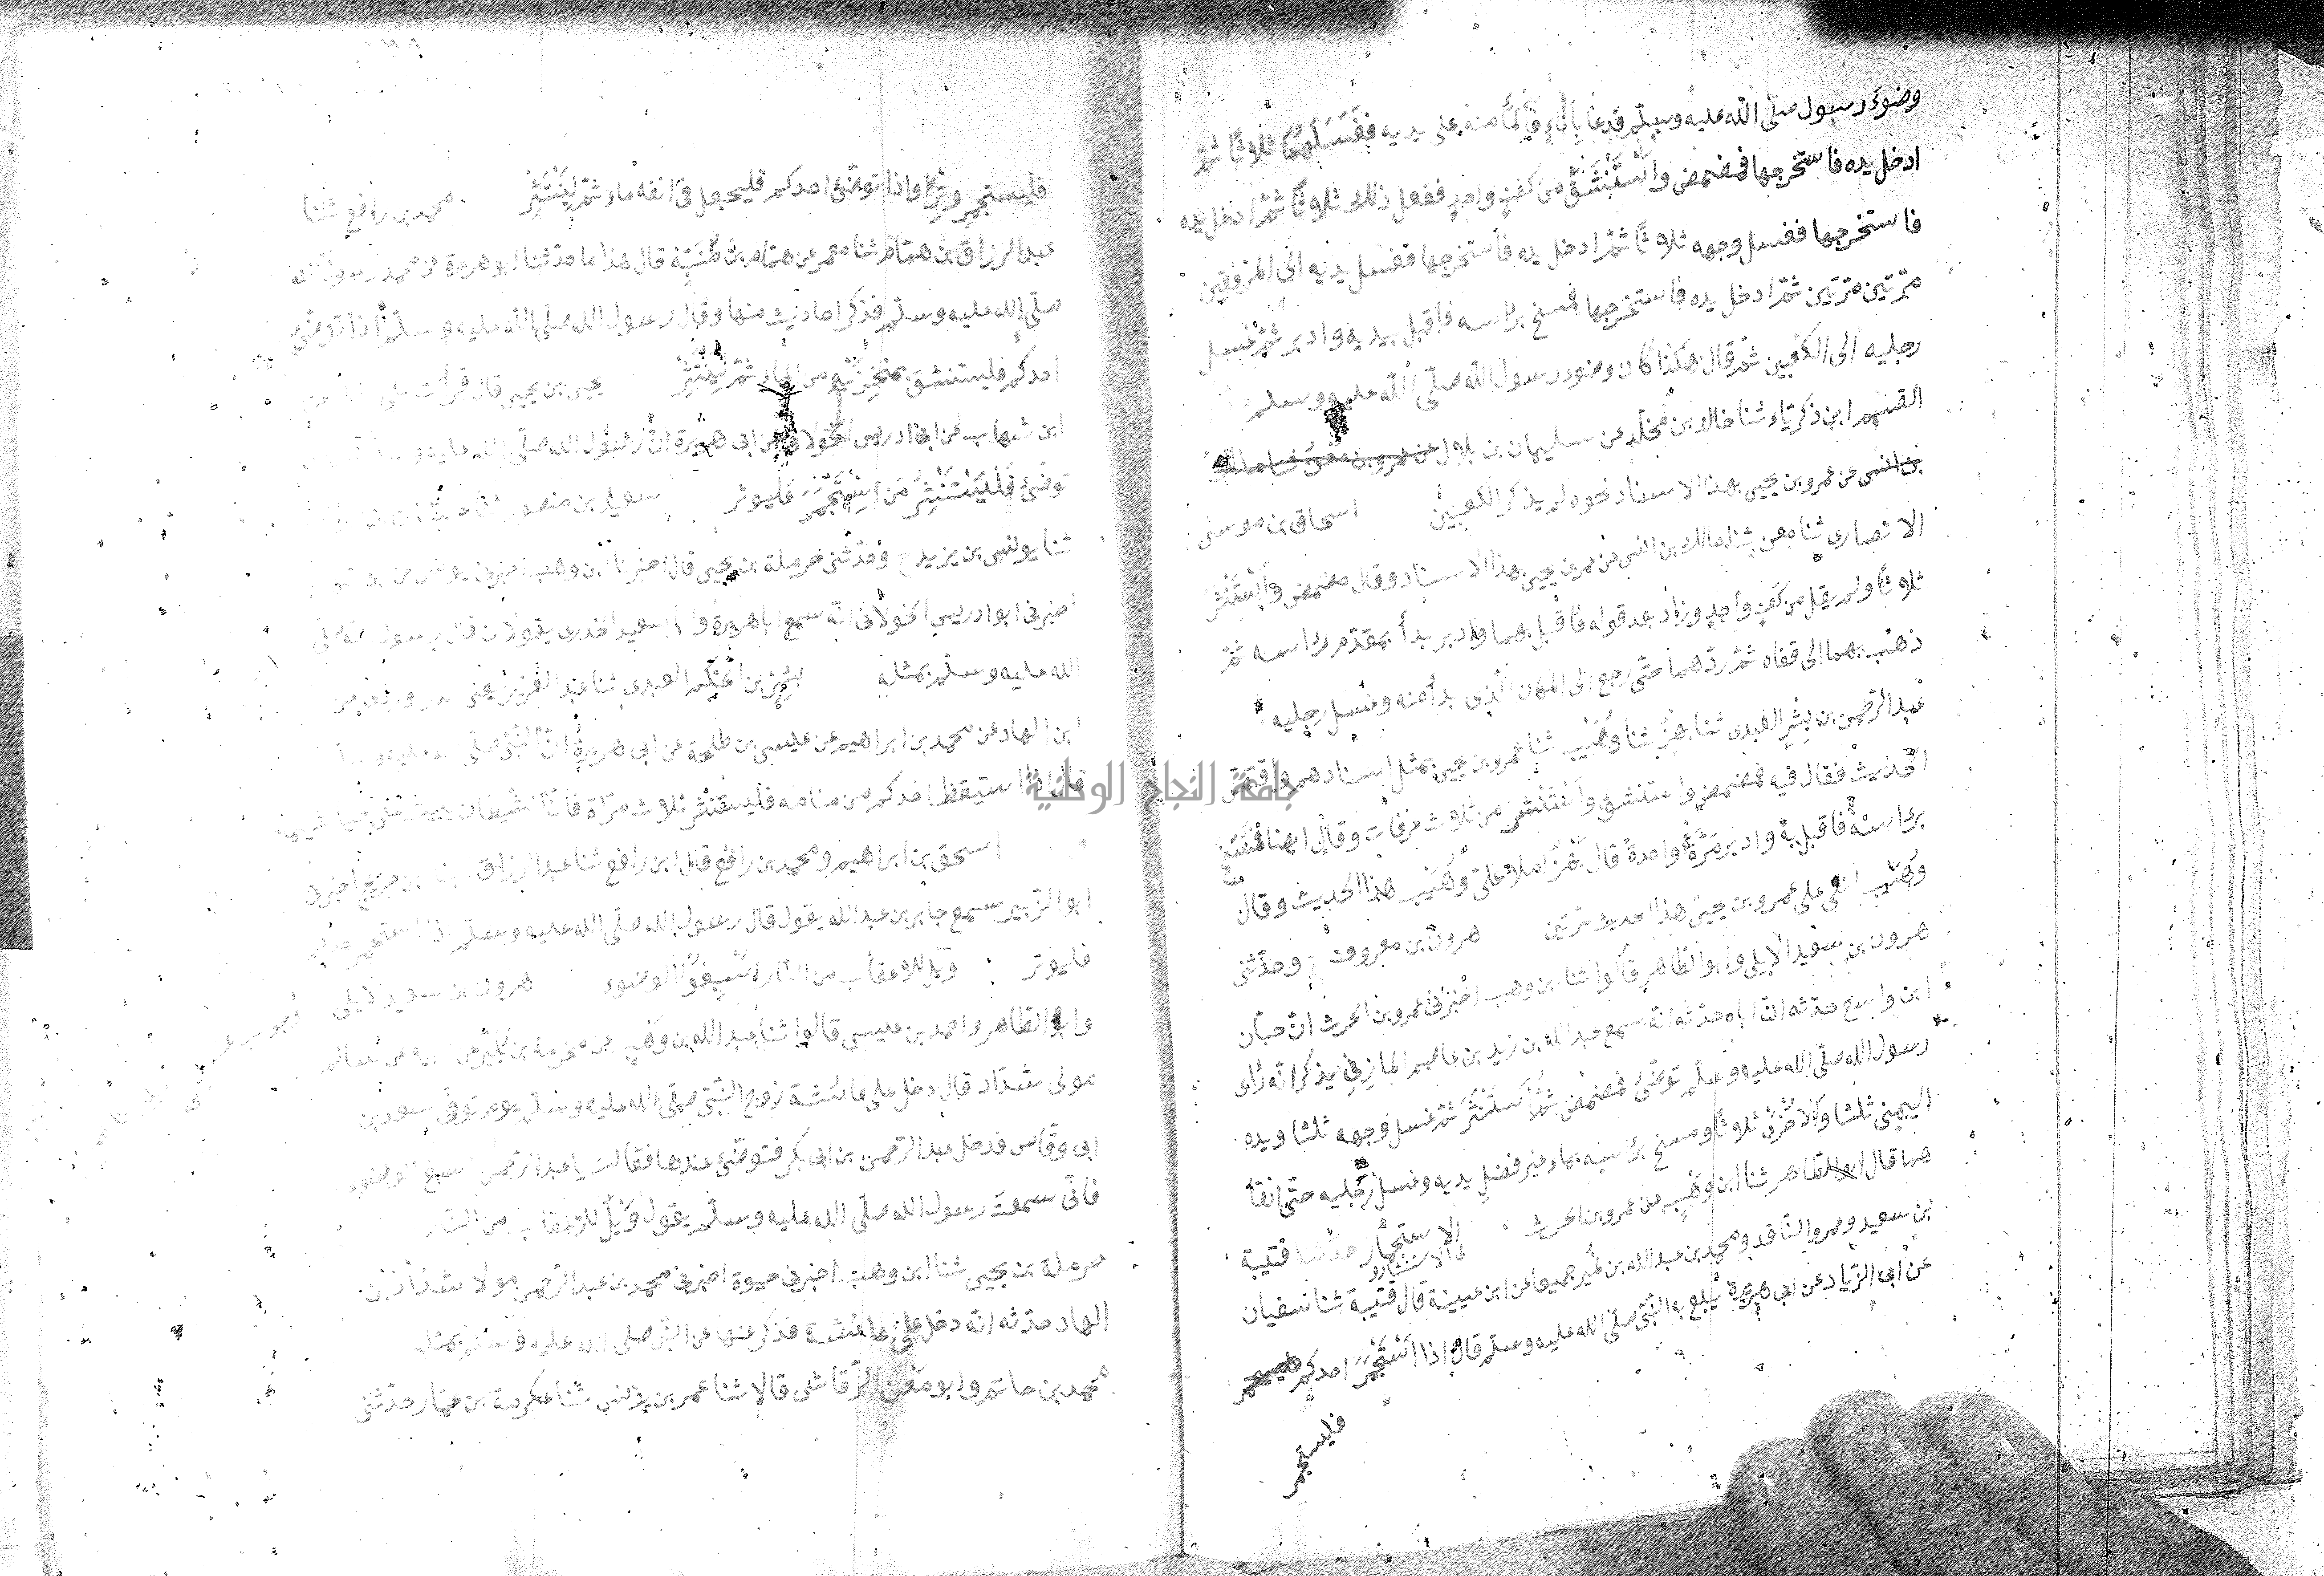 وضوءَ رسول صلّى الله عليه وسلم فدعا بإناءٍ فأكفأ منه على يديه فغسَلَهُما ثلاثًا ثمّ
ادخل يده فاستخرجها فمضمض واسْتَنْشَقَ من كفٍ واحدٍ ففعل ذلك ثلاثًا ثمّ ادخل يده
فاستخرجها فغسل وجهه ثلاثًا ثمّ ادخل يده فاستخرجها فغسل يديه الى المرفقين
مرّتين مرّتين ثمّ ادخل يده فاستخرجها فمسح برأسه فاقبل بيديه وادبر ثمّ غسل
رجليه الى الكعبين ثمّ قال هكذا كان وضوء رسول الله صلّى الله عليه وسلم
القسم ابن زكريّاء ثنا خالد بن مخلد عن سليمان بن بلال عن عمرو بن معن ثنا مالك
بن انس عن عمرو بن يحيى بهذا الاسناد نحوه لم يذكر الكعبين اسحاق بن موسى
الانصارى ثنا معن ثنا مالك بن انس عن عمرو بن يحيى بهذا الاسناد وقال مضمض واسْتَنْثَرَ
ثلاثًا ولم يقل من كفٍ واحدٍ وزاد بعد قوله فاقبل بهما وادبر بدأ بمقدّم رأسه ثمّ
ذهب بهما الى قفاه ثمّ ردّهما حتّى رجع الى المكان الّذى بدأ منه وغسل رجليه
عبد الرحمن بن بِشْرٍ العبدى ثنا بهزٌ ثنا وُهَيْب ثنا عمرو بن يحيى بمثل اسنادهم واقتصّ
الحديث فقال فيه فمضمض واستنشق واستنثر من ثلاث غرفات وقال ايضا فمَسَحَ
برأسه فاقبل به وادبر مَرَّةً واحدة قال بَهْزٌ املا علىّ وُهَيْب هذا الحديث وقال
وُهَيْب املى على عمرو بن يحيى هذا الحديث مرّتين هرون بن معروف وحدّثنى
هرون بن سعيد الايلى وابو الطاهر قالوا ثنا ابن وهب اخبرنى عمرو بن الحرث انّ حبّان
ابن واسع حدّثه انّ اباه حدّثه انّه سمع عبد الله بن زيد بن عاصم المازنى يذكر انّه رأى
رسول الله صلّى الله عليه وسلّم توضّئ فمضمض ثمّ اسْتَنْثَرَ ثمّ غسل وجهه ثلثا ويده
اليمنى ثلثا والاخرى ثلاثًا ومسح برأسه بماء غير فضل يديه وغسل رجليه حتّى انقا
هما قال ابو الطاهر ثنا ابن وهب عن عمرو بن الحرث الاستجمار حدثنا قتيبة
والاستنثار
بن سعيد وعمرو الناقد ومحمد بن عبد الله بن نُمَيْر جميعا عن ابن عيينة قال قتيبة ثنا سفيان
عن ابى الزّناد عن ابى هريرة يبلغ به النّبىّ صلّى الله عليه وسلم قال اذا اسْتَجْمَرَ احدكم
فليستجمر
فليستجمر وترًا واذا توضّئ احدكم فليجعل فى انفه ماء ثمّ لِيَنْتَثِرْ محمد بن رافع ثنا
عبد الرزاق بن همّام ثنا معمر عن همّام بن مُنَبِّه قال هذا ما حدّثنا ابو هريرة عن محمد رسول الله
صلّى الله عليه وسلّم فذكر احاديث منها وقال رسول الله صلّى الله عليه وسلّم اذا توضّئ
احدكم فليستنشق بمنخِرَيْه من الماء ثمّ لْيَنْتَثِرْ يحيى بن يحيى قال قرأت على
ابن شهاب عن ابى ادريس الخولانى عن ابى هريرة انّ رسول الله صلّى الله عليه و
توضّئ فَلْيَسْتَنْثِرْ مَن اسْتَجْمَرَ فليوتر سعيد بن منصو ثنا
ثنا يونس بن يزيد ح وحدّثنى حرملة بن يحيى قال اخبرنا ابن وهب اخبرنى يونس عن
اخبرنى ابو ادريس الخولانى انّه سمع ابا هريرة وابا سعيد الخدرى يقولان قال رسول الله صلّى
الله عليه وسلّم بمثله بِشْرُ بن الحَكَم العبدى ثنا عبد العزيز يعنى الدراوردى عن
ابن الهاد عن محمد بن ابراهيم عن عيسى بن طلحة عن ابى هريرة انّ النّبىّ صلّى الله عليه و
قال اذا استيقظ احدكم من منامه فليستنثر ثلاث مرّاة فانّ الشّيطان يبيت على خياشيمه
اسحق بن ابراهيم ومحمد بن رافع قال ابن رافع ثنا عبد الرزاق ابن جريج اخبرنى
ابو الزّبير سمع جابر بن عبد الله يقول قال رسول الله صلّى الله عليه وسلّم اذا استجمر احدكم
فليوتر ويل للاعقاب من النّار اسْبِغُوا الوضوء هرون بن سعيد الايلى
وابو الطاهر واحمد بن عيسى قالوا ثنا عبد الله بن وَهَب عن مخرمة بن بُكَيْر عن ابيه عن سالم
مولى شدّاد قال دخل على عائشة زوج النّبىّ صلّى الله عليه وسلّم يوم توفّى سعد بن
ابى وقّاص فدخل عبد الرّحمن بن ابى بكر فتوضّئ عندها فقالت يا عبد الرحمن اسبغ الوضوء
فانّى سمعت رسول الله صلّى الله عليه وسلّم يقول وَيْلٌ للاعقاب من النّار
حرملة بن يحيى ثنا ابن وهب اخبرنى حيوة اخبرنى محمد بن عبد الرّحمن مولا شدّاد بن
الهاد حدّثه انّه دخل على عائشة فذكر عنها عن النّبىّ صلى الله عليه وسلّم بمثله
محمد بن حاتم وابو معن الرّقاشى قالا ثنا عمر بن يونس ثنا عكرمة بن عمّار حدّثنى
جامعة النجاح الوطنية